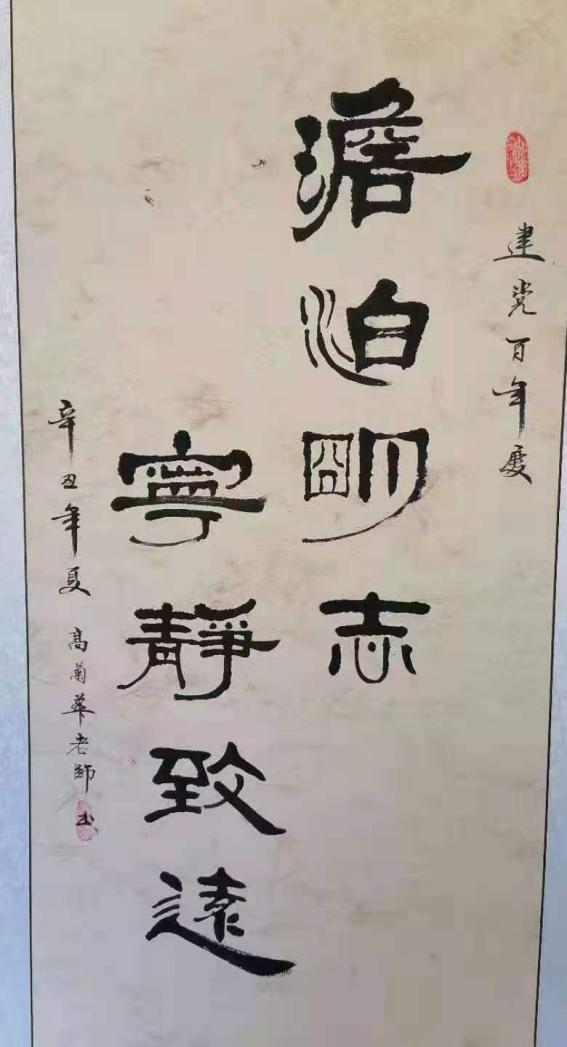 建党百年度
澹泊明志
寧靜致遠
辛丑年夏 高菊華老師 书